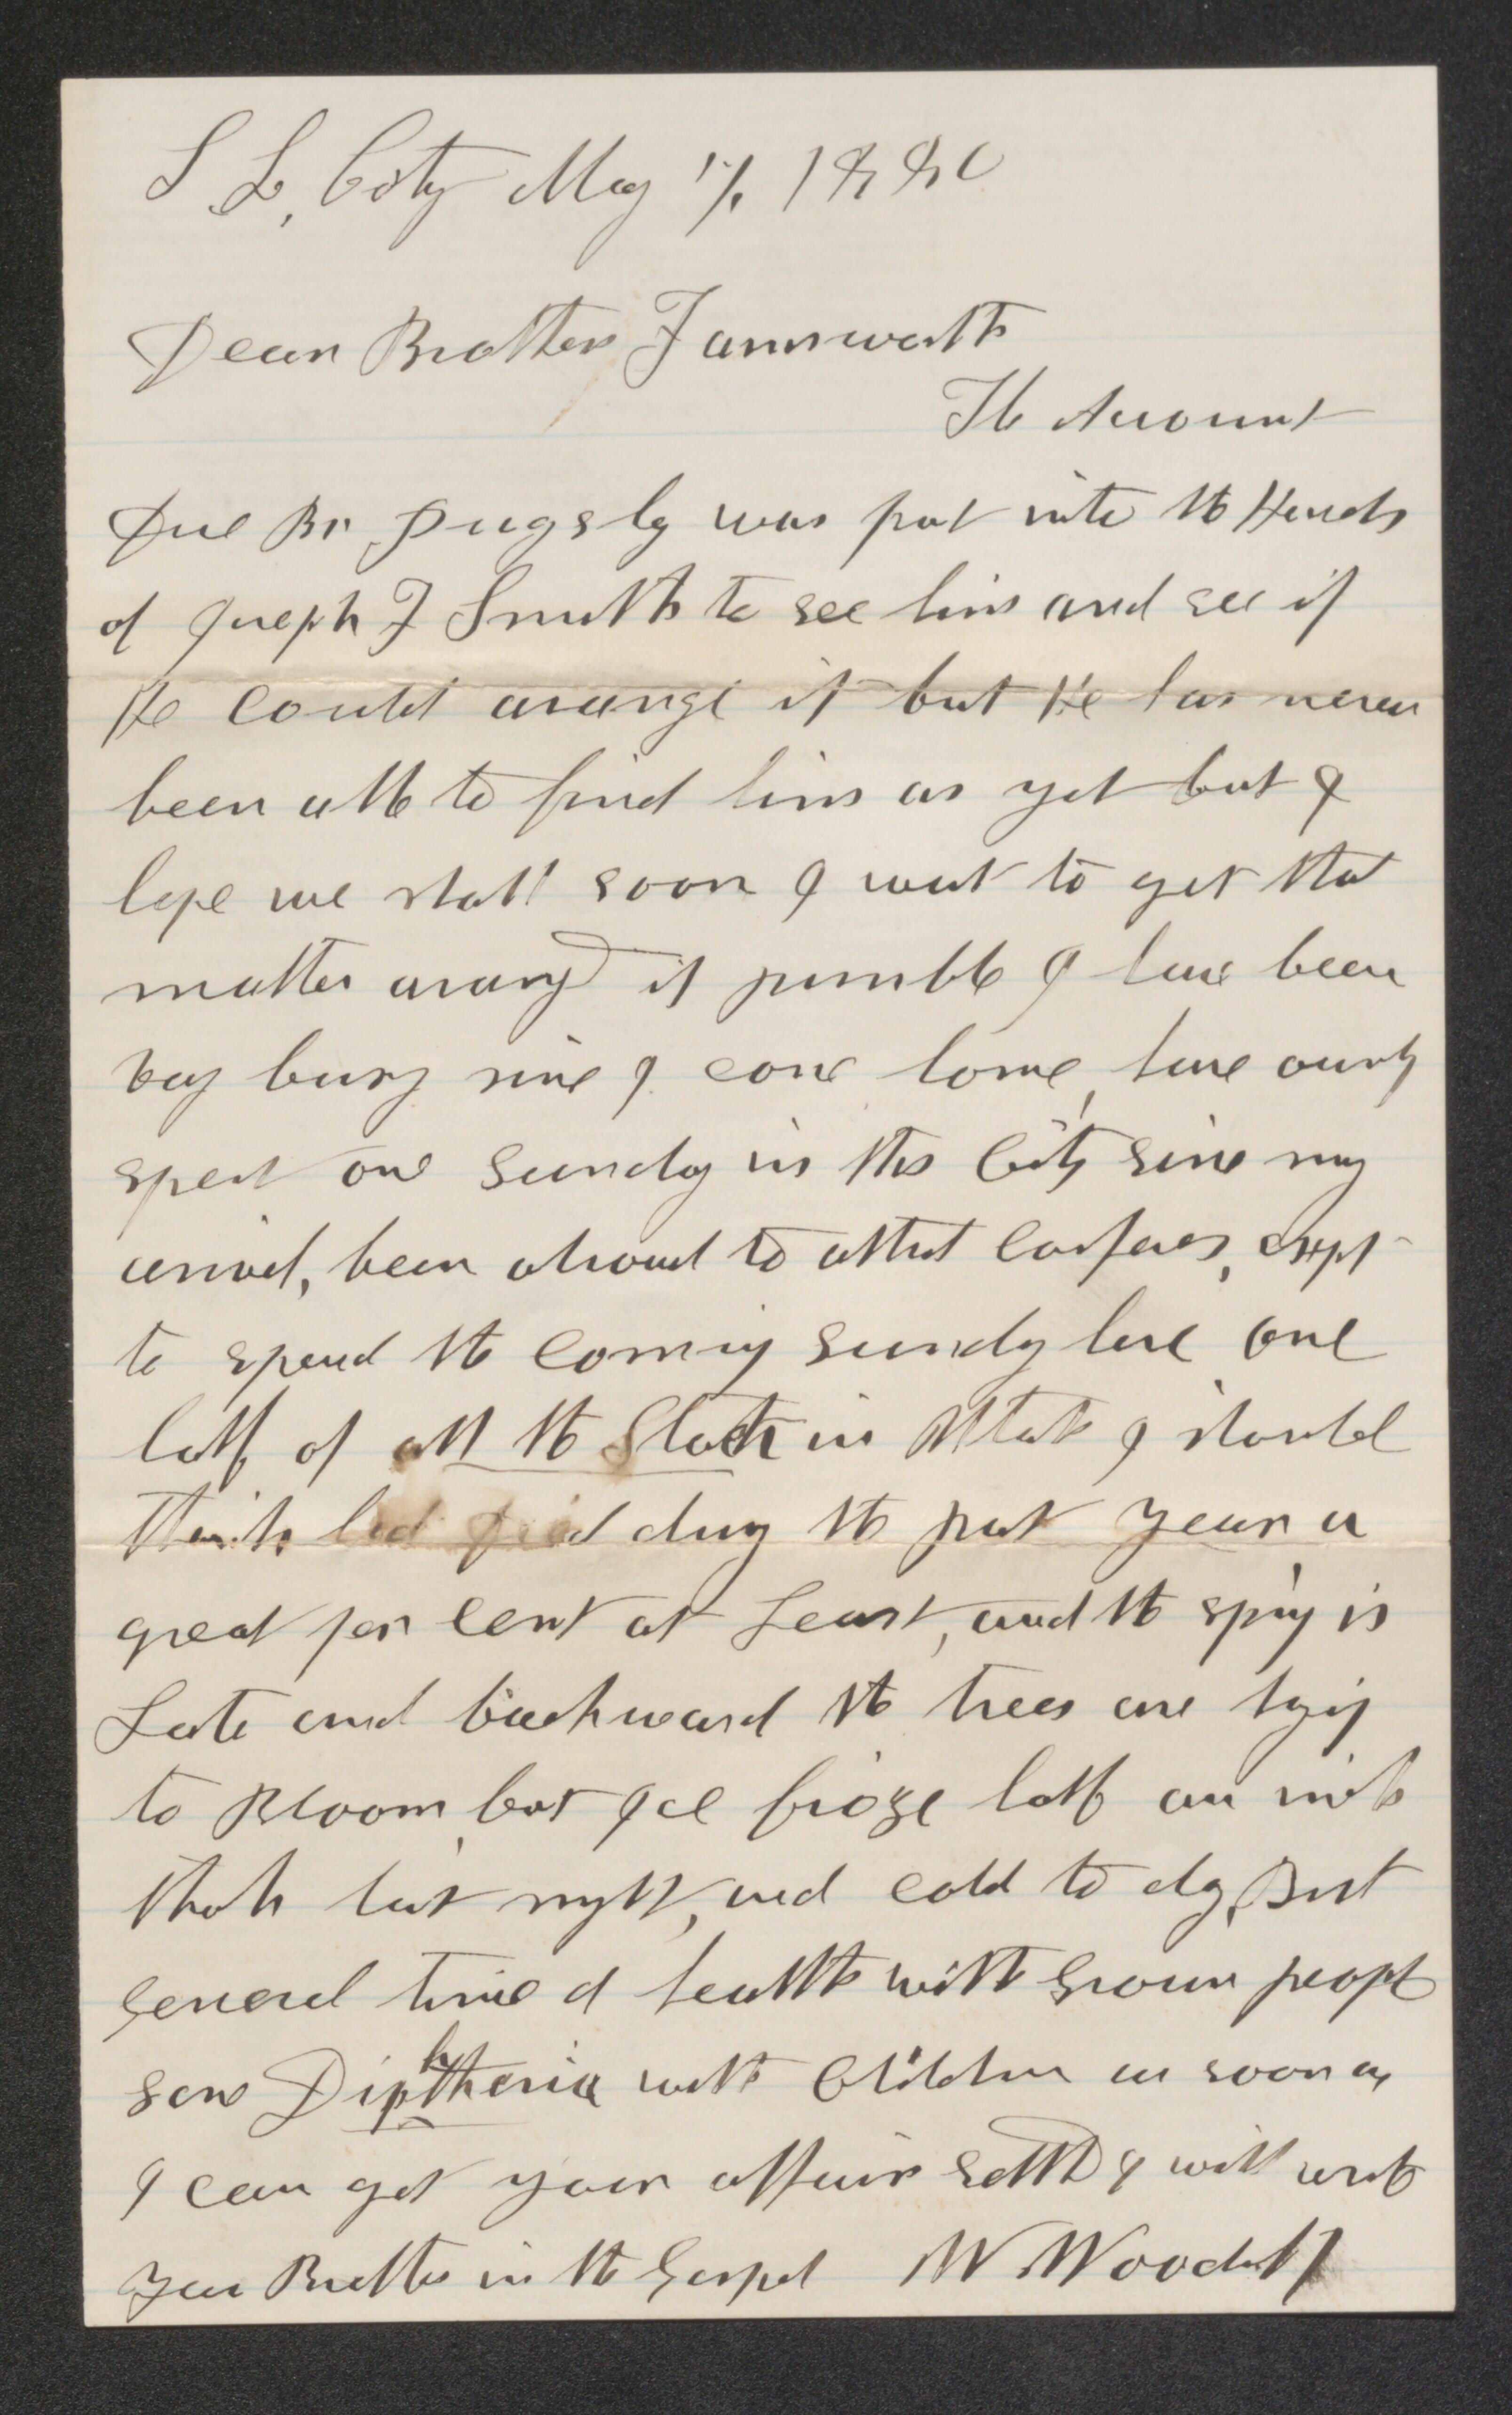 S L, City May 17, 1880
Dear Brother Farnsworth
The Account
Due Br Pugsly was put into the Hands
of Joseph F Smith to see him and see if
He could arange it but He has never
been able to find him as yet but I
hope we shall soon I want to get that
matter arangd if possible I have been
vey busy since I come home, have ownly
spent one Sunday in this City since my
arrival, been abroad to attend Conferces, expt
to spend the coming Sundy here one
half of all the Stock in Utah I should
think had died duing the past year a
great per cent at Least, and the sping is
Late and backward the trees are tryig
to Bloom, but Ice froze half an inch
thick last night, and cold to day, But
general time of health with grown people
some Diphtheria with Children as soon as
I can get your affairs settld I will write
your Brother in the Gospel W Woodruff